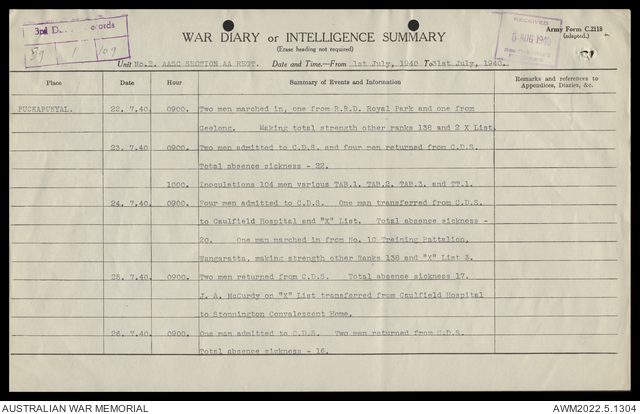 3rd D
89 1 109
RECEIVED
5 AUG 1940
Army Form C.2118
(adapted.)
WAR DIARY or INTELLIGENCE SUMMARY
(Erase heading not required)
Unit No.2. AASC SECTION AA REGT. Date and Time.—From 1st July, 1940 To 31st July, 1940.
Place Date Hour Summary of Events and Information Remarks and references to
Appendices, Diaries, &c.
PUCKAPUNYAL. 22. 7.40 0900. Two men marched in, one from R.R.D. Royal Park and one from
Geelong. Making total strength other ranks 138 and 2 X List.
23. 7.40 0900. Two men admitted to C.D.S. and four men returned from C.D.S.
Total absence sickness - 22.
1000. Inoculations 104 men various TAB.1. TAB.2. TAB.3. and TT.1.
24. 7.40 0900. Four men admitted to C.D.S. One man transferred from C.D.S.
to Caulfield Hospital and "X" List. Total absence sickness -
20. One man marched in from No. 10 Training Battalion,
Wangaratta, making strength other Ranks 138 and "X" List 3.
25. 7.40 0900. Two men returned from C.D.S. Total absence sickness 17.
J. A. McCurdy on "X" List transferred from Caulfield Hospital
to Stonnington Convalescent Home.
26. 7.40. 0900. One man admitted to C.D.S. Two men returned from C.D.S.
Total absence sickness - 16.
AUSTRALIAN WAR MEMORIAL AWM2022.5.1304